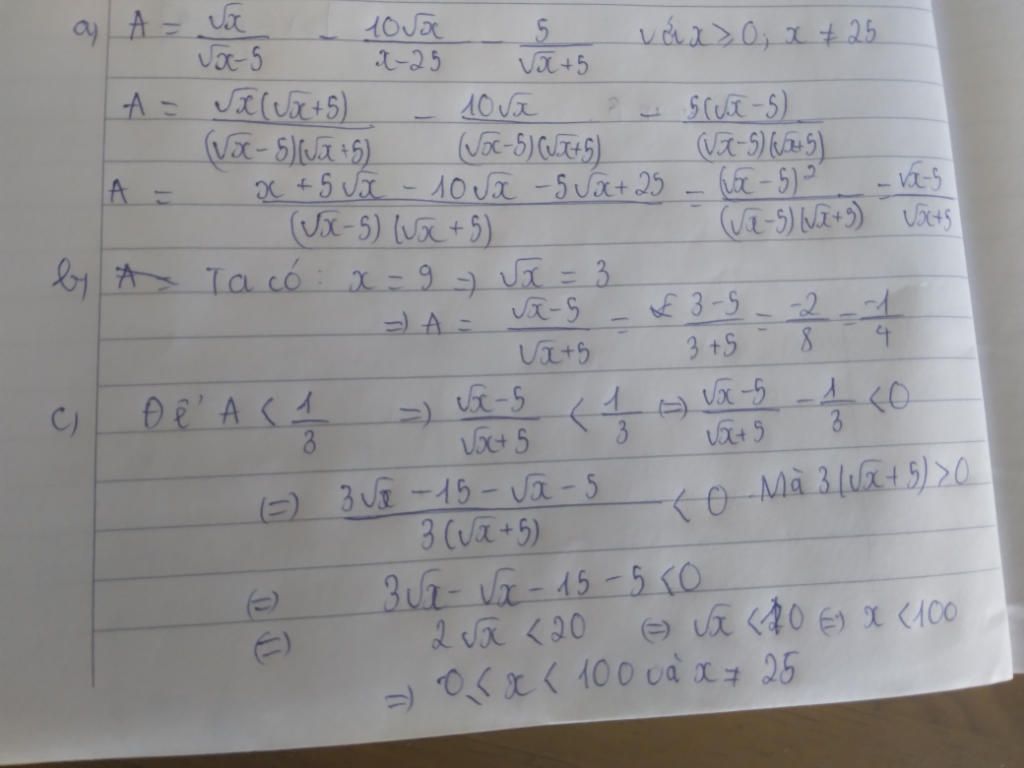 a) A = √x/(√x-5) - 10√x/(x-25) - 5/(√x+5) với x ≥ 0; x ≠ 25
A = √x(√x+5)/((√x-5)(√x+5)) - 10√x/((√x-5)(√x+5)) - 5(√x-5)/((√x-5)(√x+5))
A = (x+5√x-10√x-5√x+25)/((√x-5)(√x+5)) = (√x-5)²/((√x-5)(√x+5)) = (√x-5)/(√x+5)
b) Ta có: x = 9 => √x = 3
=> A = (√x-5)/(√x+5) = (3-5)/(3+5) = -2/8 = -1/4
c) Để A < 1/3 => (√x-5)/(√x+5) < 1/3 (=) (√x-5)/(√x+5) - 1/3 < 0
(=) (3√x-15-√x-5)/(3(√x+5)) < 0 Mà 3(√x+5) > 0
(=) 3√x-√x-15-5 < 0
(=) 2√x < 20 (=) √x < 10 (=) x < 100
=> 0 ≤ x < 100 và x ≠ 25